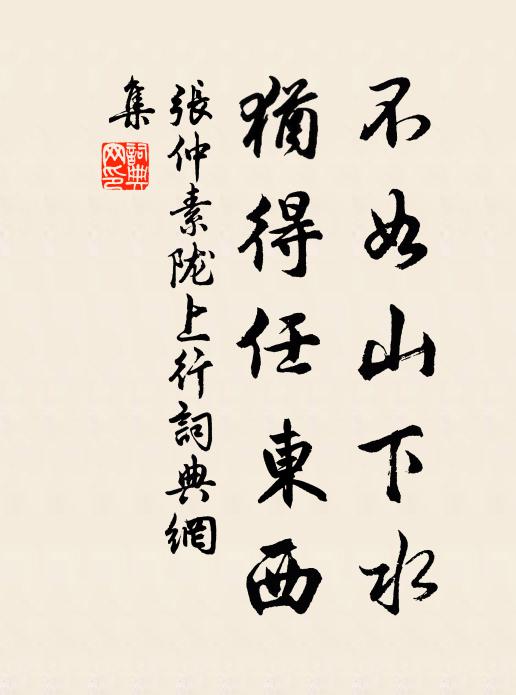 不如山下水
猶得任東西
張仲素陇上行詞典網
集
詞典網印